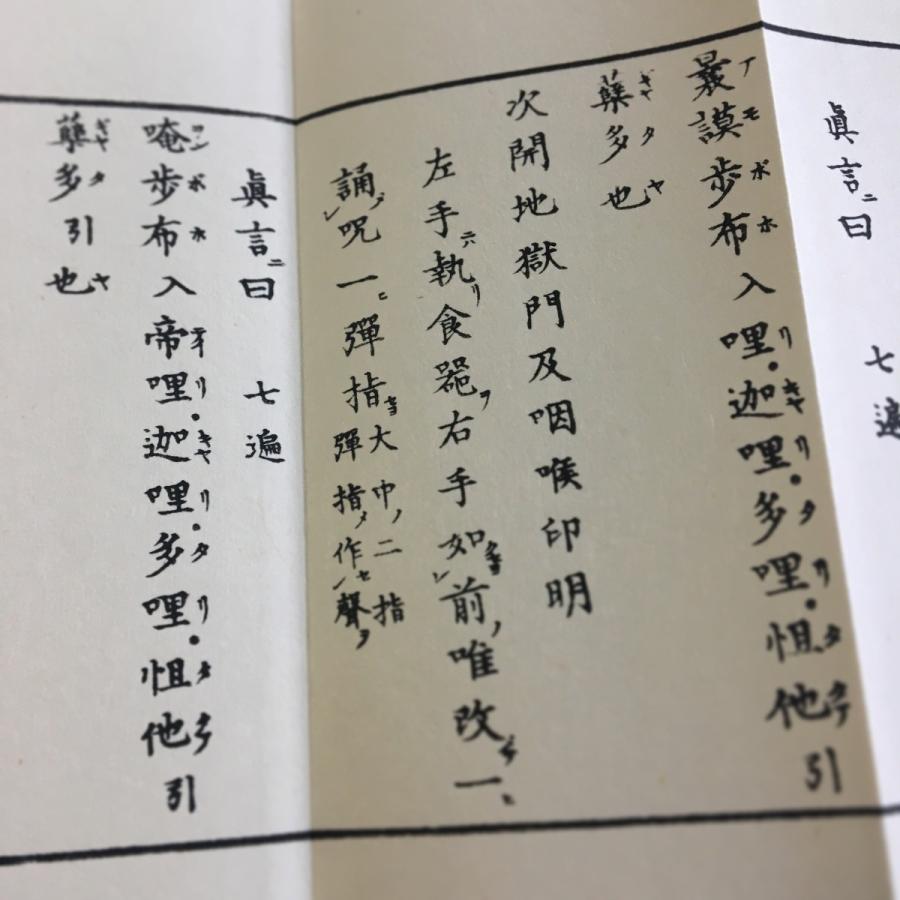 眞言ニ曰 七遍
曩謨歩布入哩迦哩多哩怛他引
蘖多也
次開地獄門及咽喉印明
左手ニ執リ食器ヲ右手如前ノ唯改一
誦呪一彈指大中ノ二指彈指ノ作聲ヲ
眞言ニ曰 七遍
唵歩布入帝哩迦哩多哩怛他引
蘖多引也